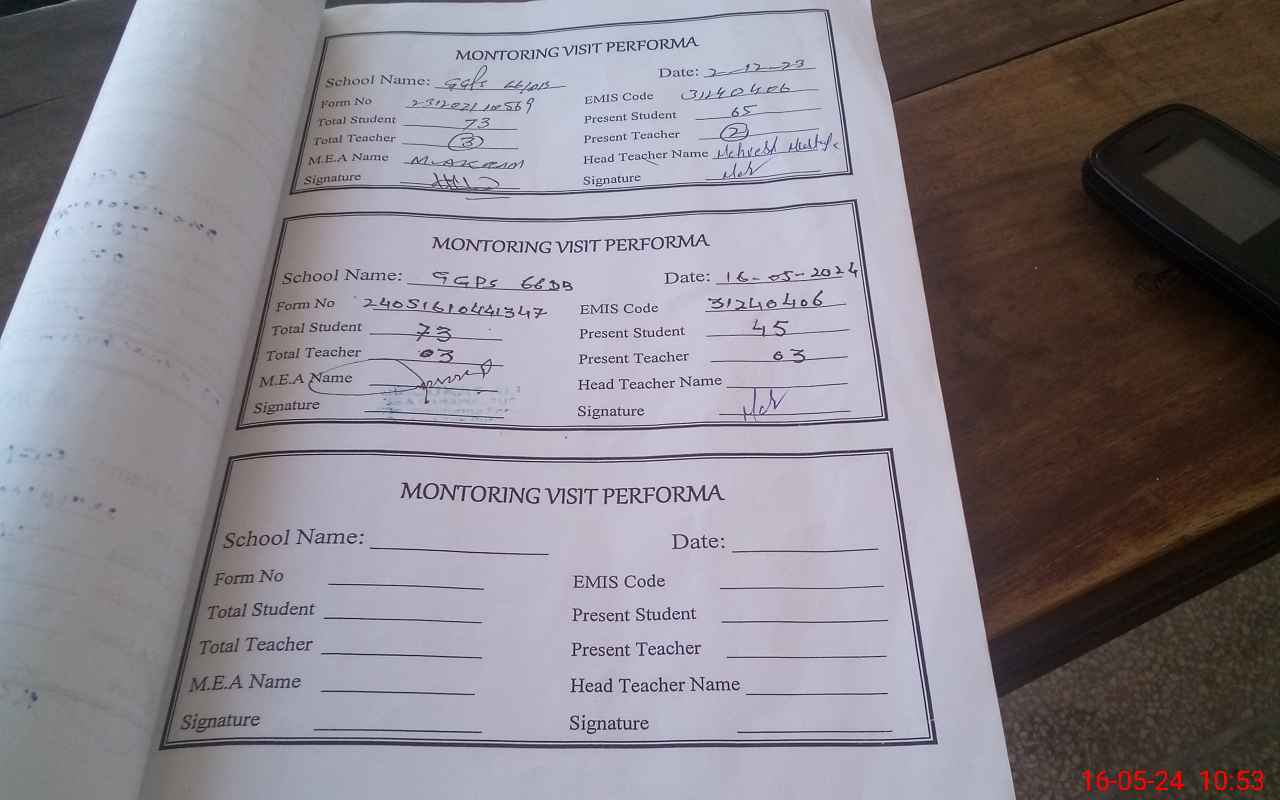 MONTORING VISIT PERFORMA
School Name: GGPS 66/DB Date: 2-12-23
Form No EMIS Code 31240406
Total Student 73 Present Student 65
Total Teacher 3 Present Teacher 2
M.E.A Name M. AKRAM Head Teacher Name
Signature Signature
MONTORING VISIT PERFORMA
School Name: GGPS 66DB Date: 16-05-2024
Form No 24051610441347 EMIS Code 31240406
Total Student 73 Present Student 45
Total Teacher 03 Present Teacher 03
M.E.A Name Head Teacher Name
Signature Signature
MONTORING VISIT PERFORMA
School Name: Date:
Form No EMIS Code
Total Student Present Student
Total Teacher Present Teacher
M.E.A Name Head Teacher Name
Signature Signature
16-05-24 10:53